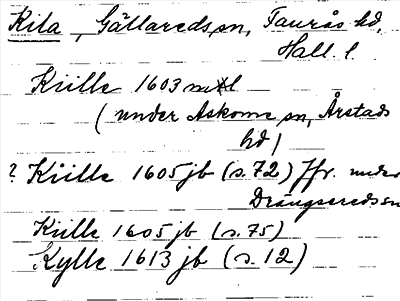 Kila, Gällareds sn, Faurås hd,
Hall. l.
Kiille 1603 mtl
(under Askome sn, Årstads
hd)
? Kiille 1605 jb (s. 72) Jfr. under
Drängsereds sn
Kiille 1605 jb (s. 75)
Kylle 1613 jb (s. 12)